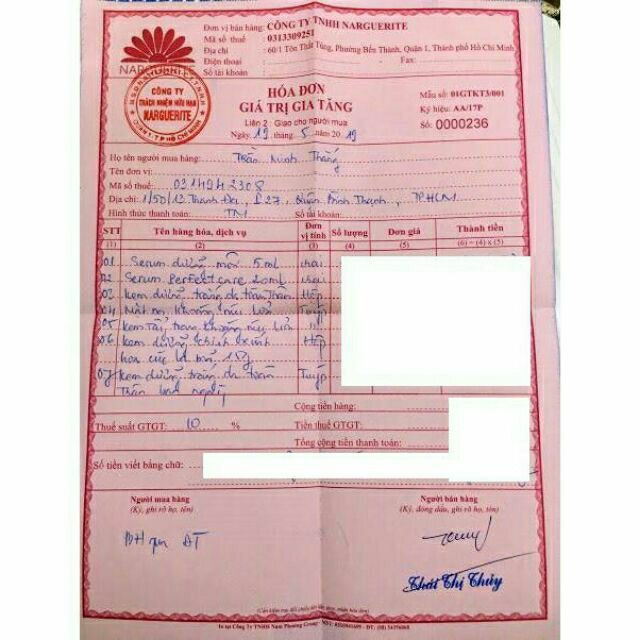 Đơn vị bán hàng: CÔNG TY TNHH NARGUERITE
Mã số thuế : 0313309251
Địa chỉ : 60/1 Tôn Thất Tùng, Phường Bến Thành, Quận 1, Thành phố Hồ Chí Minh
Điện thoại : Fax:
Số tài khoản:
NARGUERITE
CÔNG TY
TRÁCH NHIỆM HỮU HẠN
NARGUERITE
HÓA ĐƠN
GIÁ TRỊ GIA TĂNG
Liên 2 - Giao cho người mua
Ngày 19 tháng 5 năm 2019
Mẫu số: 01GTKT3/001
Ký hiệu: AA/17P
Số: 0000236
Họ tên người mua hàng: Trần Minh Thắng
Tên đơn vị:
Mã số thuế: 0314942308
Địa chỉ: 1/50/12 Thanh Đa, P.27, Quận Bình Thạnh, TPHCM
Hình thức thanh toán: TM Số tài khoản:
STT Tên hàng hóa, dịch vụ Đơn vị tính Số lượng Đơn giá Thành tiền
(1) (2) (3) (4) (5) (6) = (4) x (5)
01 Serum dưỡng môi 5ml chai
02 Serum Perfect care 20ml chai
03 Kem dưỡng trắng da toàn thân Hộp
04 khoáng núi lửa Tuýp
05 Kem tẩy trang khoáng núi lửa
06 Kem dưỡng Hộp
hoa cúc 15g
07 Kem dưỡng trắng da toàn Tuýp
thân
Cộng tiền hàng:
Thuế suất GTGT: 10 % Tiền thuế GTGT:
Tổng cộng tiền thanh toán:
Số tiền viết bằng chữ:
Người mua hàng
(Ký, ghi rõ họ, tên)
Người bán hàng
(Ký, đóng dấu, ghi rõ họ, tên)
BH qua ĐT
Thái Thị Thủy
(Cần kiểm tra, đối chiếu khi lập, giao, nhận hóa đơn)